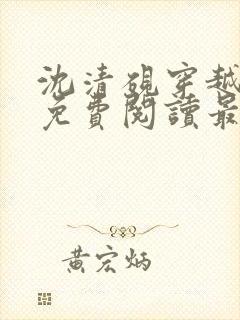 沈清硯穿越
免費閱讀最
黃宏炳